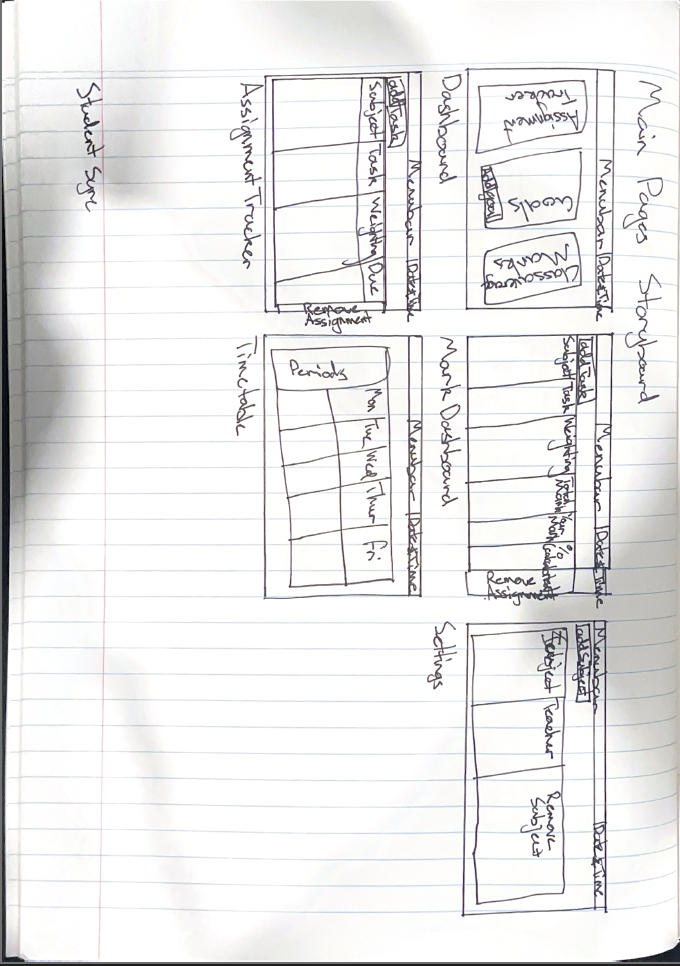 Main Pages Storyboard
Menubar Date&Time
Assignment
Tracker
Goals
Add goal
Marks
Dashboard
Menubar Date&Time
add Task
Subject Task Weighting Total Mark Your Mark %
Remove
Assignment
Mark Dashboard
Menubar Date&Time
add Subject
Subject Teacher Remove
Subject
Settings
Menubar Date&Time
add Task
Subject Task Weighting Due
Remove
Assignment
Assignment Tracker
Menubar Date&Time
Periods Mon Tue Wed Thur Fri
Timetable
Student Sync